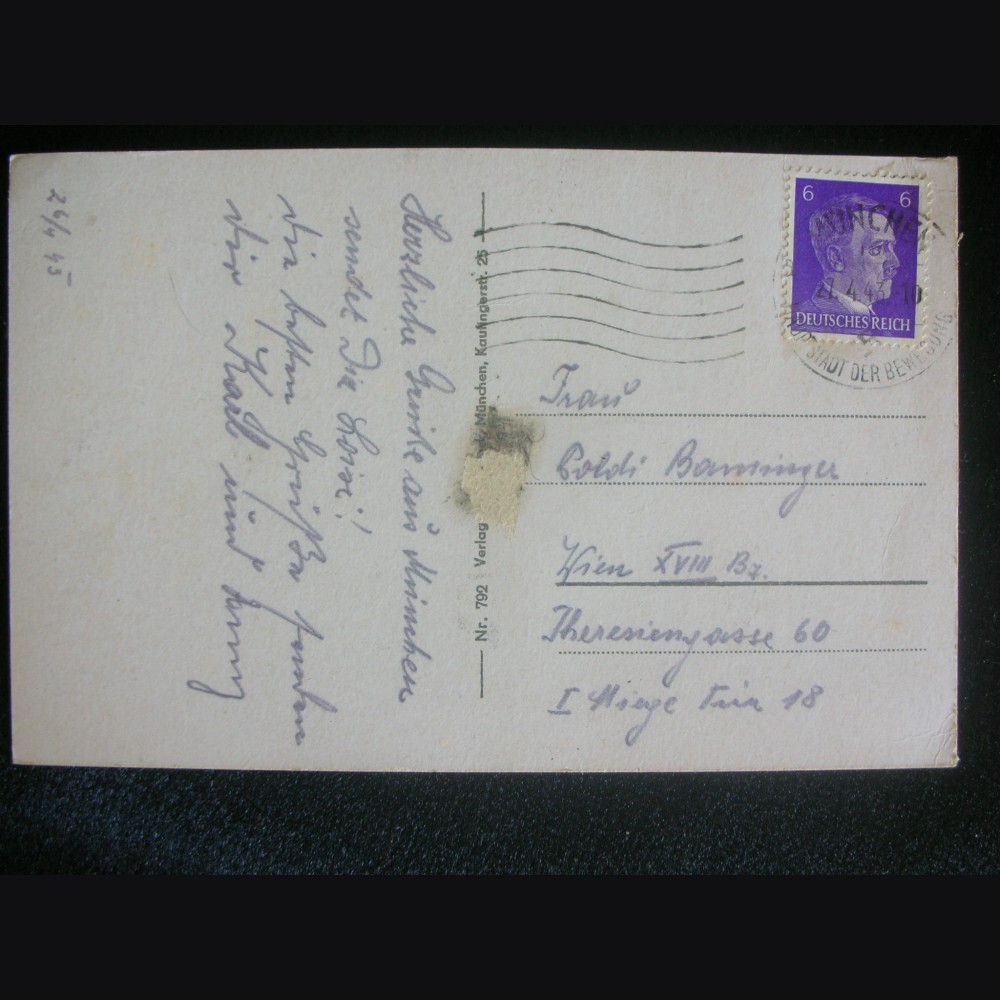 Herzliche Grüße aus München
sendet Dir Loisi!
die besten Grüße senden
dir Karl und
26/4 43
Nr. 792 Verlag München, Kaufingerstr. 25
6 6
DEUTSCHES REICH
MÜNCHEN
27.4.43-10
HAUPTSTADT DER BEWEGUNG
Frau
Poldi Baminger
Wien XVIII Bz.
Theresiengasse 60
I Stiege Tür 18